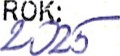 ROK:
2025